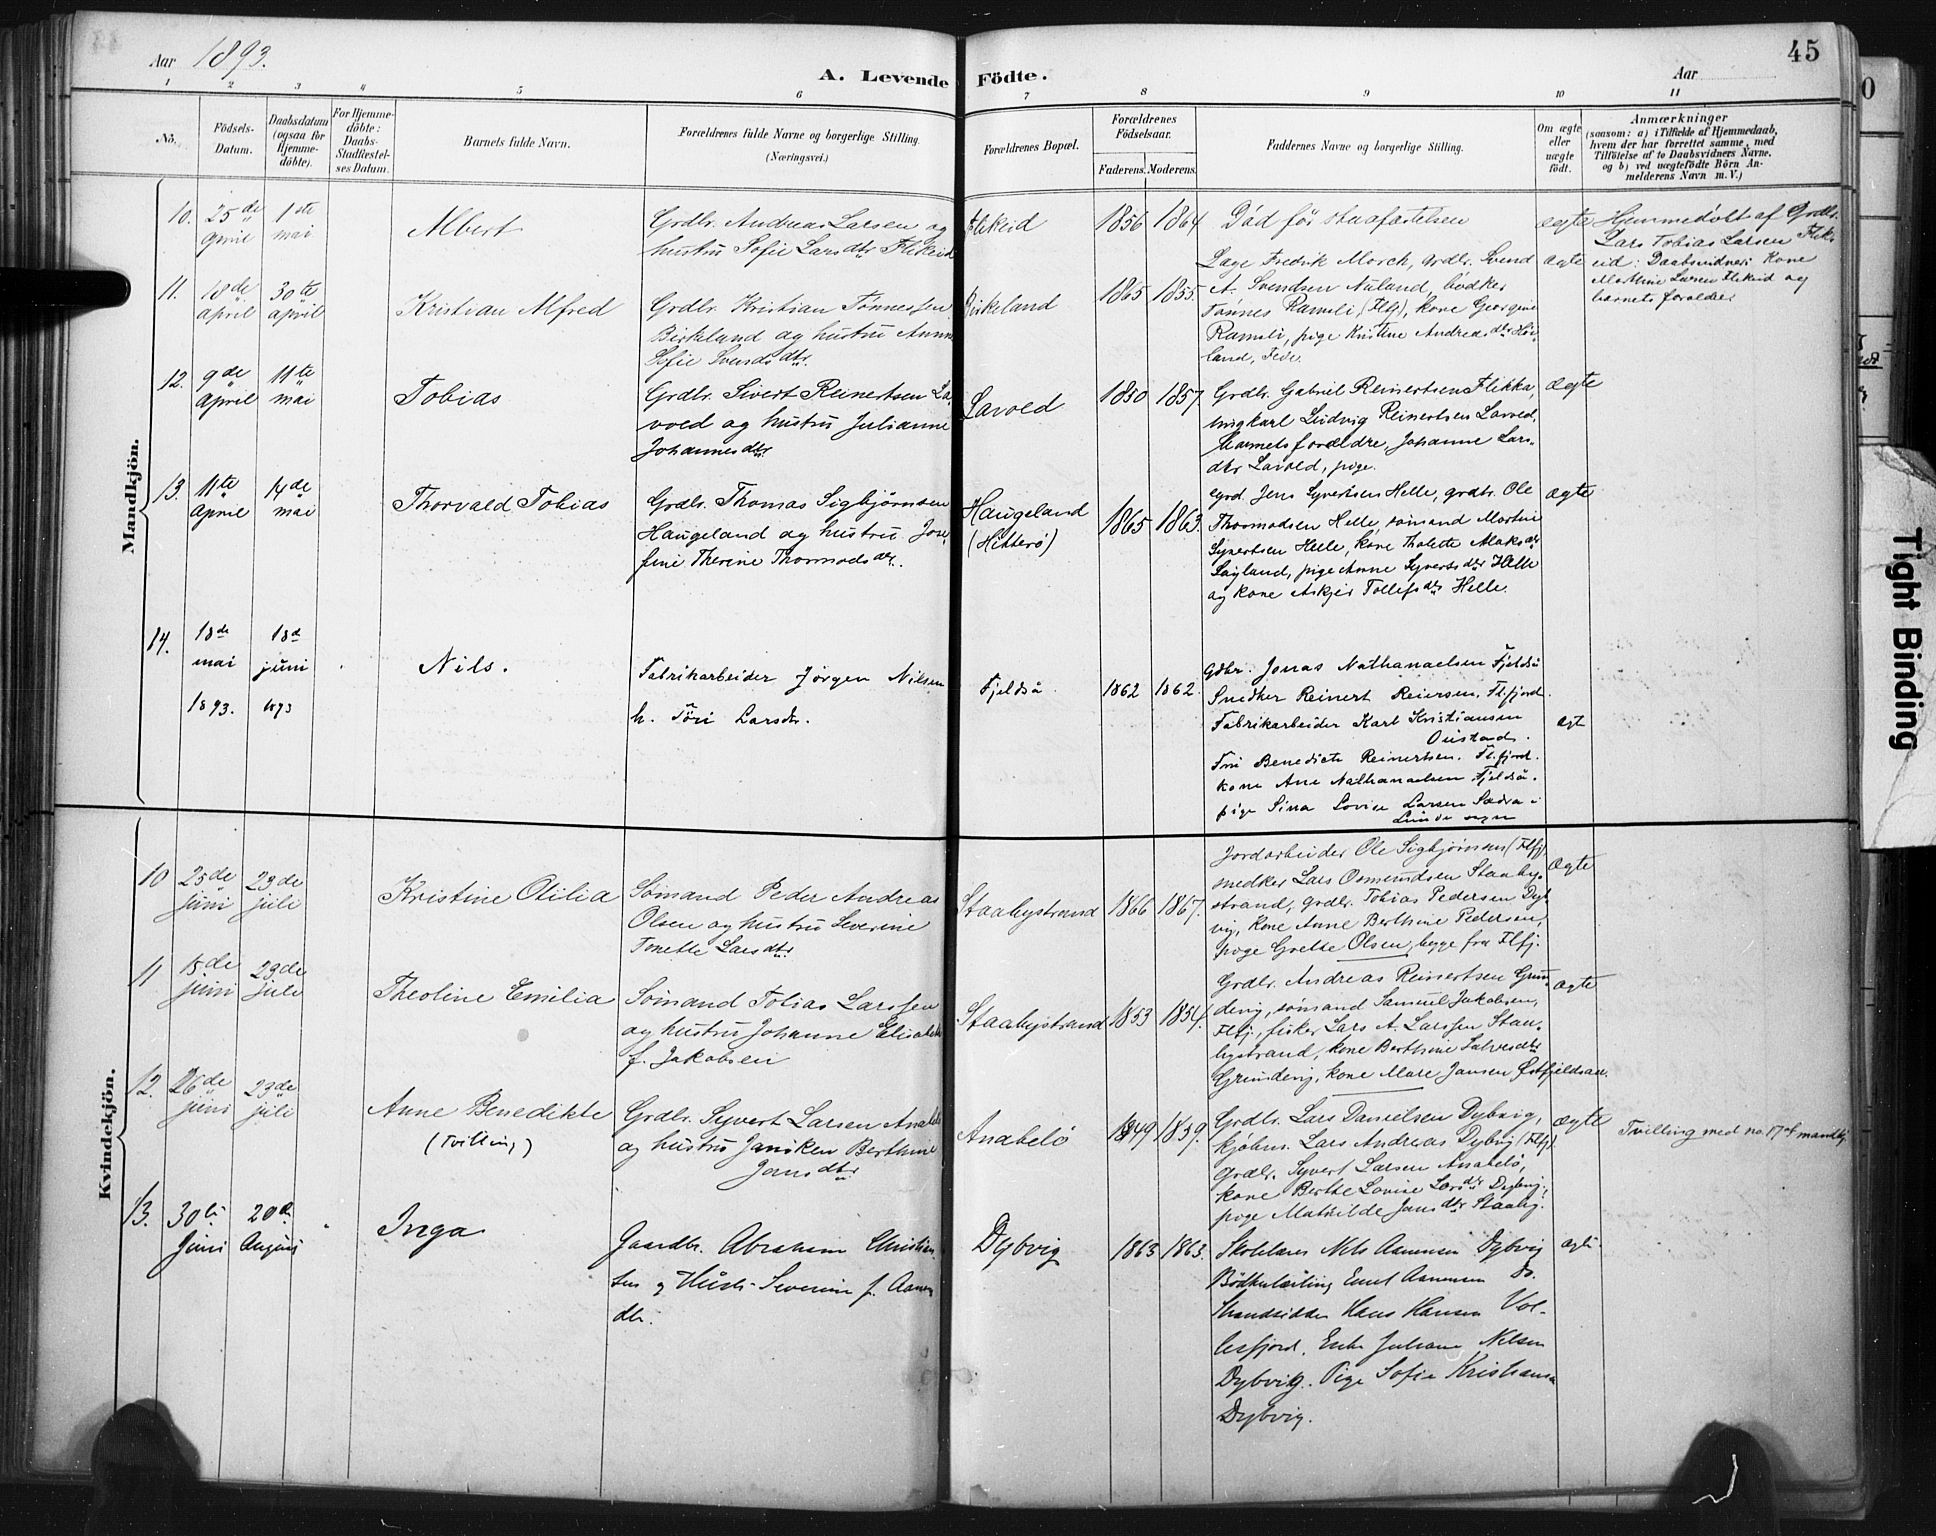 Aar 1893.
A. Levende Födte.
Aar
45
1 2 3 4 5 6 7 8 9 10 11
No.
Födsels-Datum.
Daabsdatum (ogsaa for Hjemme-döbte).
For Hjemme-döbte: Daabs-Stadfæstel-ses Datum.
Barnets fulde Navn.
Forældrenes fulde Navne og borgerlige Stilling.
(Næringsvei.)
Forældrenes Bopæl.
Forældrenes Födselsaar.
Faderens. Moderens.
Faddernes Navne og borgerlige Stilling.
Om ægte eller uægte födt.
Anmærkninger
(saasom: a) i Tilfælde af Hjemmedaab,
hvem der har forrettet samme, med
Tilföielse af to Daabsvidners Navne,
og b) ved uægtefödte Börn An-
melderens Navn m. V.)
Mandkjön.
10. 25de april
1ste mai
Albert
Grdbr. Andreas Larsen og
hustru Sofie Larsdtr Flikeid
Flikeid
1856 1864
Död før stadfæstelsen
ægte
Hjemmedöbt af Grdbr.
Lars Tobias Larsen Flik-
eid; Daabsvidner: Kone
Marthine Larsen Flikeid og
barnets forældre
11. 18de april
30te april
Kristian Alfred
Grdbr. Kristian Tønnessen
Birkeland og hustru Anne
Sofie Svendsdtr.
Birkeland
1865 1855
Lage Fredrik Morch, grdbr. Svend
A. Svendsen Nuland, bødker
Tønnes Ramsli (Flfj), kone Georgine
Ramsli, pige Kristine Andreasdtr Høi-
land, Fede.
ægte
12. 9de april
11te mai
Tobias
Grdbr. Sivert Reinertsen La-
vold og hustru Julianne
Johannesdtr
Lavold
1850 1857
Grdbr. Gabriel Reinertsen Flikka,
ungkarl Ludvig Reinertsen Lavold,
Barnets forældre, Johanne Lars-
dtr Lavold, pige.
ægte
13. 11te april
14de mai
Thorvald Tobias
Grdbr. Thomas Sigbjørnsen
Haugeland og hustru Jose-
fine Therine Thormodsdtr.
Haugeland
(Hitterö)
1865 1863.
Grd. Jens Syvertsen Helle, grdbr. Ole
Thormodsen Helle, sømand Martin
Syvertsen Helle, kone Thalette Aleksdtr
Søyland, pige Anne Syvertsdtr Helle
og kone Askjer Tollefsdtr Helle.
ægte
14. 18de mai 1893.
18de juni 1893
Nils.
Fabrikarbeider Jørgen Nilsen
h. Töri Larsdtr.
Fjeldså.
1862 1862.
Gdbr. Jonas Nathanaelsen Fjeldså
Snedker Reinert Reiersen. Fl.fjord.
Fabrikarbeider Karl Kristiansen
Oustad.
Fru Benedicte Reinertsen. Fl.fjord.
kone Ane Nathanaelsen Fjeldså.
pige Sina Lovise Larsen Sædra i
Lunde sogn
ægt
Kvindekjön.
10 25de juni
23de juli
Kristine Otilia
Sömand Peder Andreas
Olsen og hustru Severine
Tonette Larsdtr
Staalystrand
1866 1867.
Jordarbeider Ole Sigbjørnsen (Flfj),
snedker Lars Osmundsen Staaly-
strand, grdbr. Tobias Pedersen Dyb-
vig, kone Anne Berthine Pedersen,
pige Grette Olsen, begge fra Flfj.
ægte
11 15de juni
23de juli
Theoline Emilia
Sömand Tobias Larssen
og hustru Johanne Elisabeth
f. Jakobsen
Staalystrand
1853 1854.
Grdbr. Andreas Reinertsen Grun-
devig, sømand Samuel Jakobsen,
Flfj, fisker Lars A. Larssen Staa-
lystrand, kone Berthine Salvesdtr
Grundevig, kone Mare Jansen Østfjeldsaa.
ægte
12. 26de juni
23de juli
Anne Benedikte
(Tvilling)
Grdbr. Syvert Larsen Anabelö
og hustru Janiken Berthine
Jansdtr
Anabelö
1849 1859.
Grdbr. Lars Danielsen Dybvig,
kjøbm. Lars Andreas Dybvig (Flfj),
grdbr. Syvert Larsen Anabelö,
kone Berthe Lovise Larsdtr Dybvig,
pige Mathilde Jansdtr Staalg.
ægte
Tvilling med no. 17 af mandkj.
13. 30te Juni
20de August
Inga
Gaardbr. Abraham Christian-
sen og Hustr. Severine f. Aanen
dtr.
Dybvig
1863 1863.
Skolelærer Nels Aanensen Dybvig
Bödkerlærling Emil Aanensen Do.
Strandsidder Hans Hansen Vol-
lesfjord. Enke Juliane Nilsen
Dybvig. Pige Sofie Kristiansen
Dybvig.
ægte.
Tight Binding